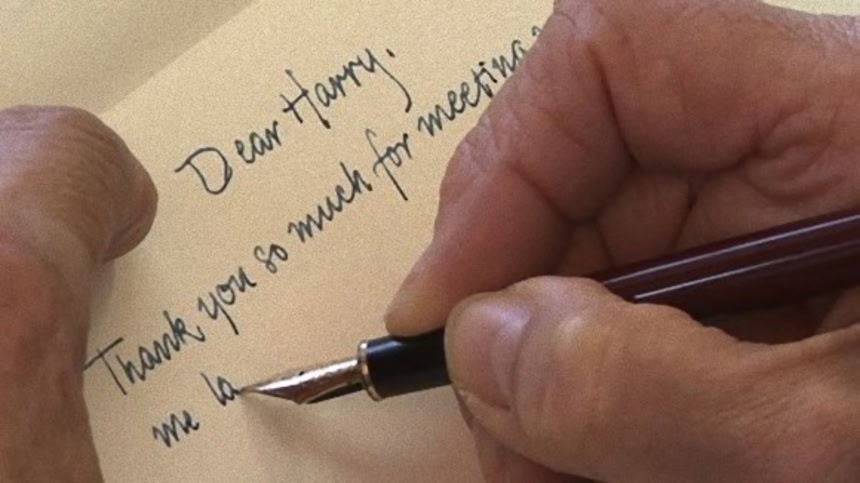 Dear Harry.
Thank you so much for meeting
me la